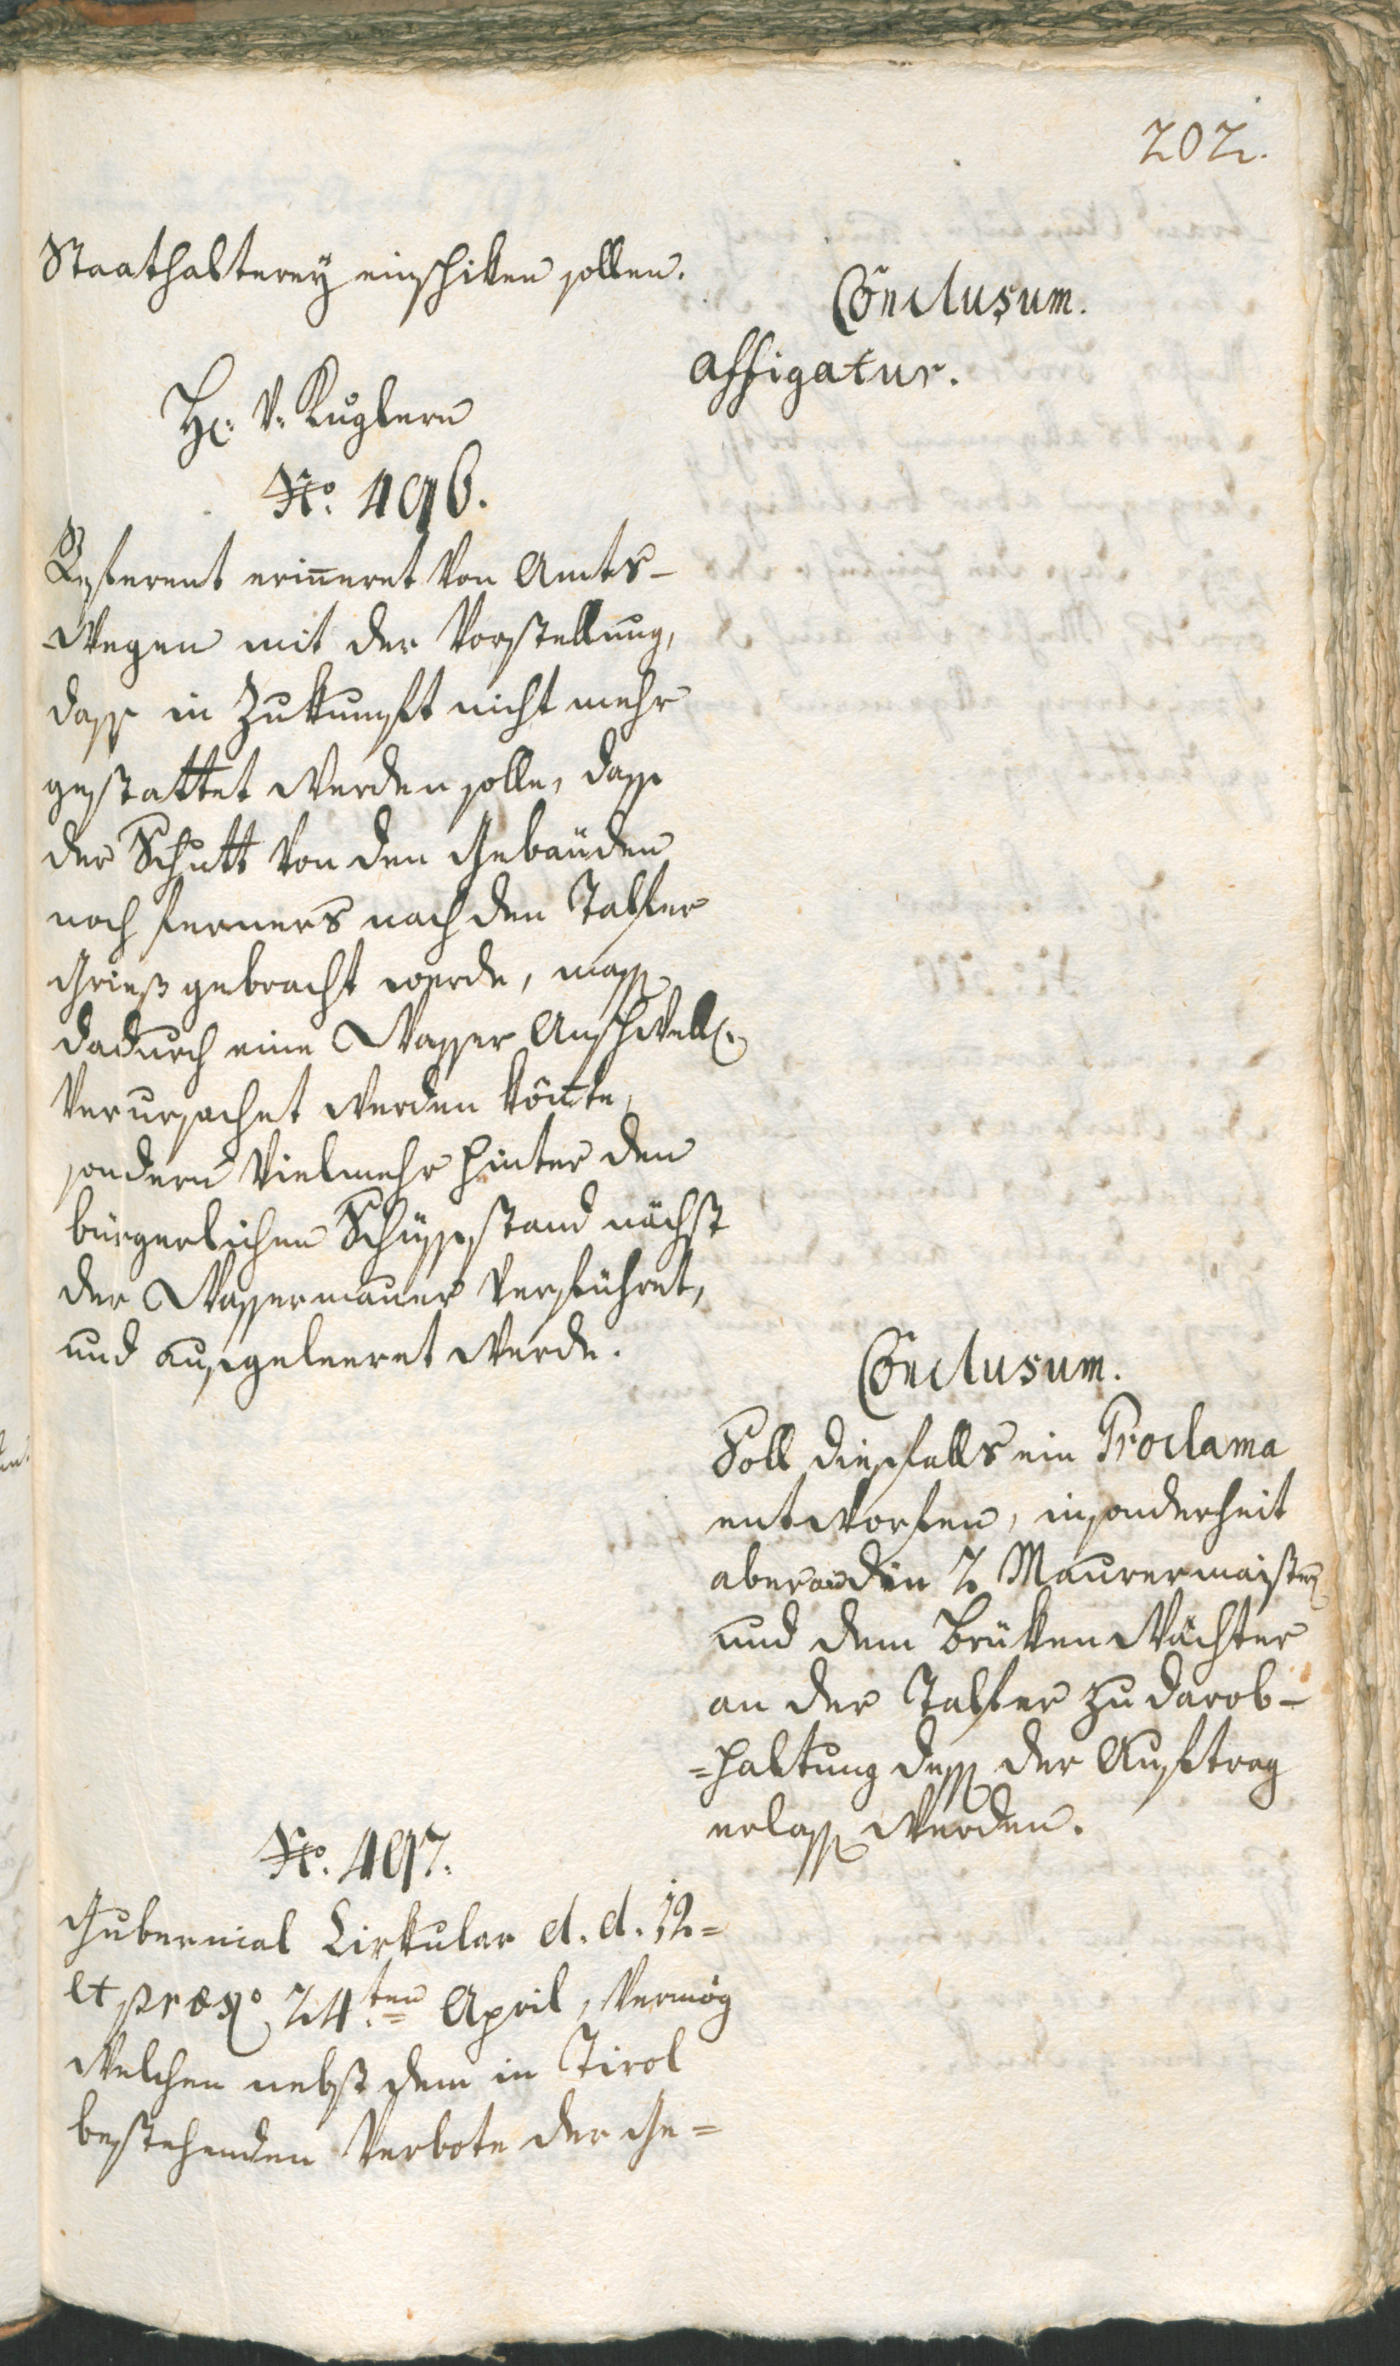 202.
Staathalterey einschiken sollen.
Conclusum.
affigatur.
H: v: Kuglern
No: 496.
Referent erinneret von Amts-
wegen mit der Vorstellung,
dass in Zukunft nicht mehr
gestattet werden solle, dass
der Schutt von den Gebäuden
noch ferners nach den Talfer
Grieß gebracht werde, mass
dadurch eine Wasser Anschwell:
verursachet werden könte,
sondern vielmehr hinter den
bürgerlichen Schüssstand nächst
der Wassermauer verführet,
und ausgeleeret werde.
Conclusum.
Soll diesfalls ein Proclama
entworfen, insonderheit
aber an die 2 Maurermaister
und dem Brüken Wächter
an der Talfer zu darob-
=haltung dess der Auftrag
erlass werden.
No. 497.
Gubernial Cirkular d. d. 12=
et præso 24ten April, vermög
welchen nebst dem in Tirol
bestehenden Verbote der Ge=